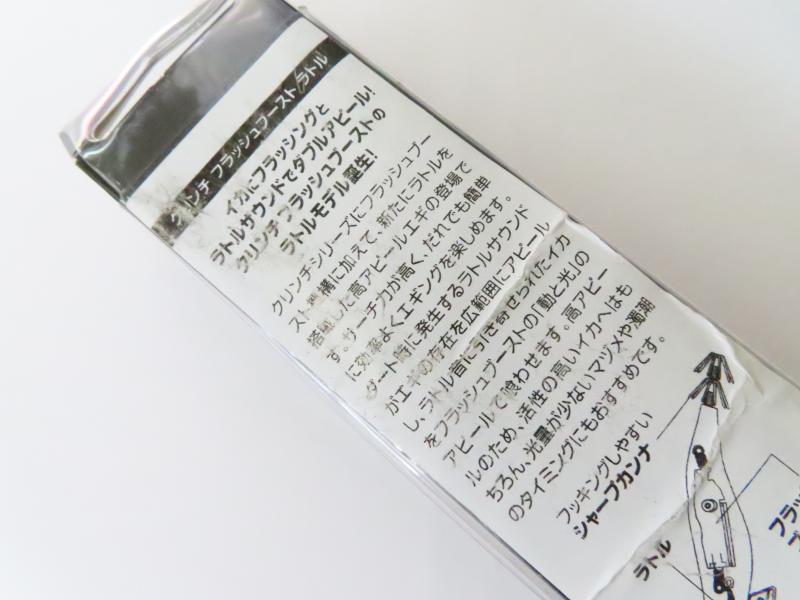 クリンチ フラッシュブースト ラトル
イカにフラッシングと
ラトルサウンドでダブルアピール!
クリンチ フラッシュブーストの
ラトルモデル誕生!
クリンチシリーズにフラッシュブー
スト機構に加えて、新たにラトルを
搭載した高アピールエギの登場で
す。サーチ力が高く、だれでも簡単
に効率よくエギングを楽しめます。
ダート時に発生するラトルサウンド
がエギの存在を広範囲にアピール
し、ラトル音に引き寄せられたイカ
をフラッシュブーストの「動と光」の
アピールで喰わせます。高アピー
ルのため、活性の高いイカへはも
ちろん、光量が少ないマヅメや濁潮
のタイミングにもおすすめです。
フッキングしやすい
シャープカンナ
ラトル
フラッ